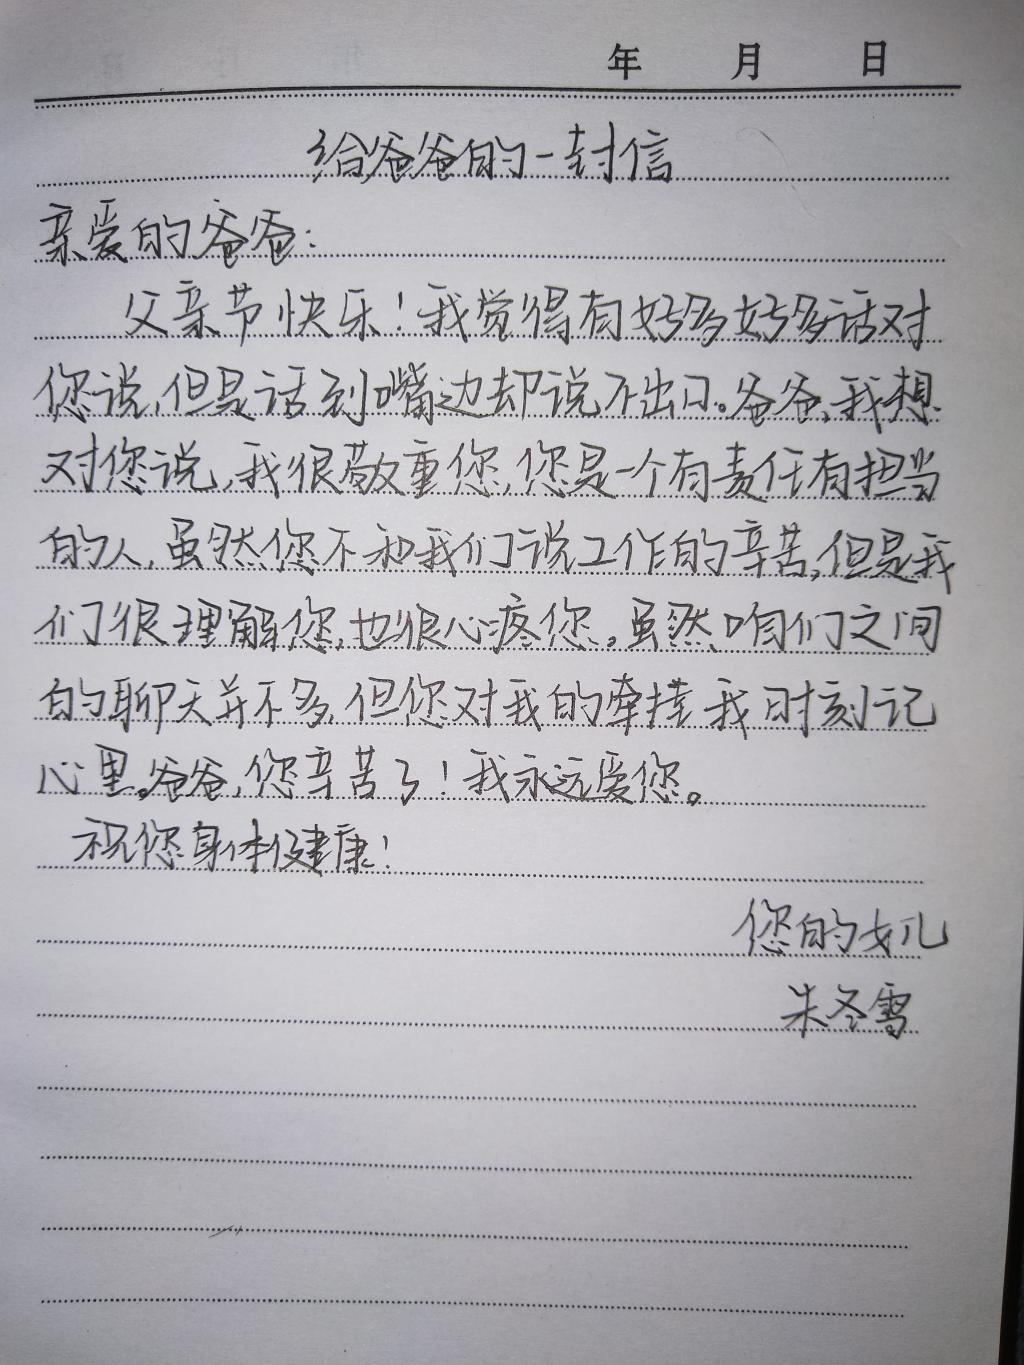 年 月 日
给爸爸的一封信
亲爱的爸爸:
父亲节快乐!我觉得有好多好多话对
您说,但是话到嘴边却说不出口。爸爸,我想
对您说,我很敬重您,您是一个有责任有担当
的人,虽然您不和我们说工作的辛苦,但是我
们很理解您,也很心疼您。虽然咱们之间
的聊天并不多,但您对我的牵挂我时刻记
心里。爸爸,您辛苦了!我永远爱您。
祝您身体健康!
您的女儿
朱冬雪